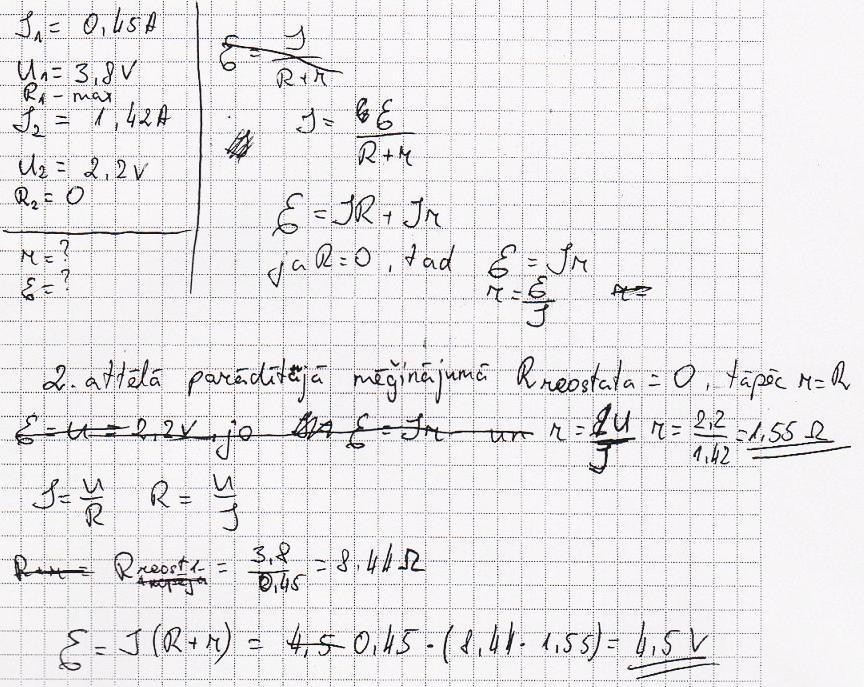 I₁ = 0,45A
U₁ = 3,8V
R₁ - max
I₂ = 1,42A
U₂ = 2,2V
R₂ = 0
r = ?
ℰ = ?
ℰ = I / (R+r)
I = ℰ / (R+r)
ℰ = IR + Ir
ja R=0, tad ℰ = Ir
r = ℰ / I r =
2. attēlā parādītājā mēģinājumā R reostata = 0, tāpēc r=R
ℰ = U = 2,2V, jo ℰ = Ir un r = U / I r = 2,2 / 1,42 = 1,55 Ω
I = U / R R = U / I
R+r = R reost1 = 3,8 / 0,45 = 8,44 Ω
ℰ = I (R+r) = 4,5 0,45 · (8,44 · 1,55) = 4,5 V